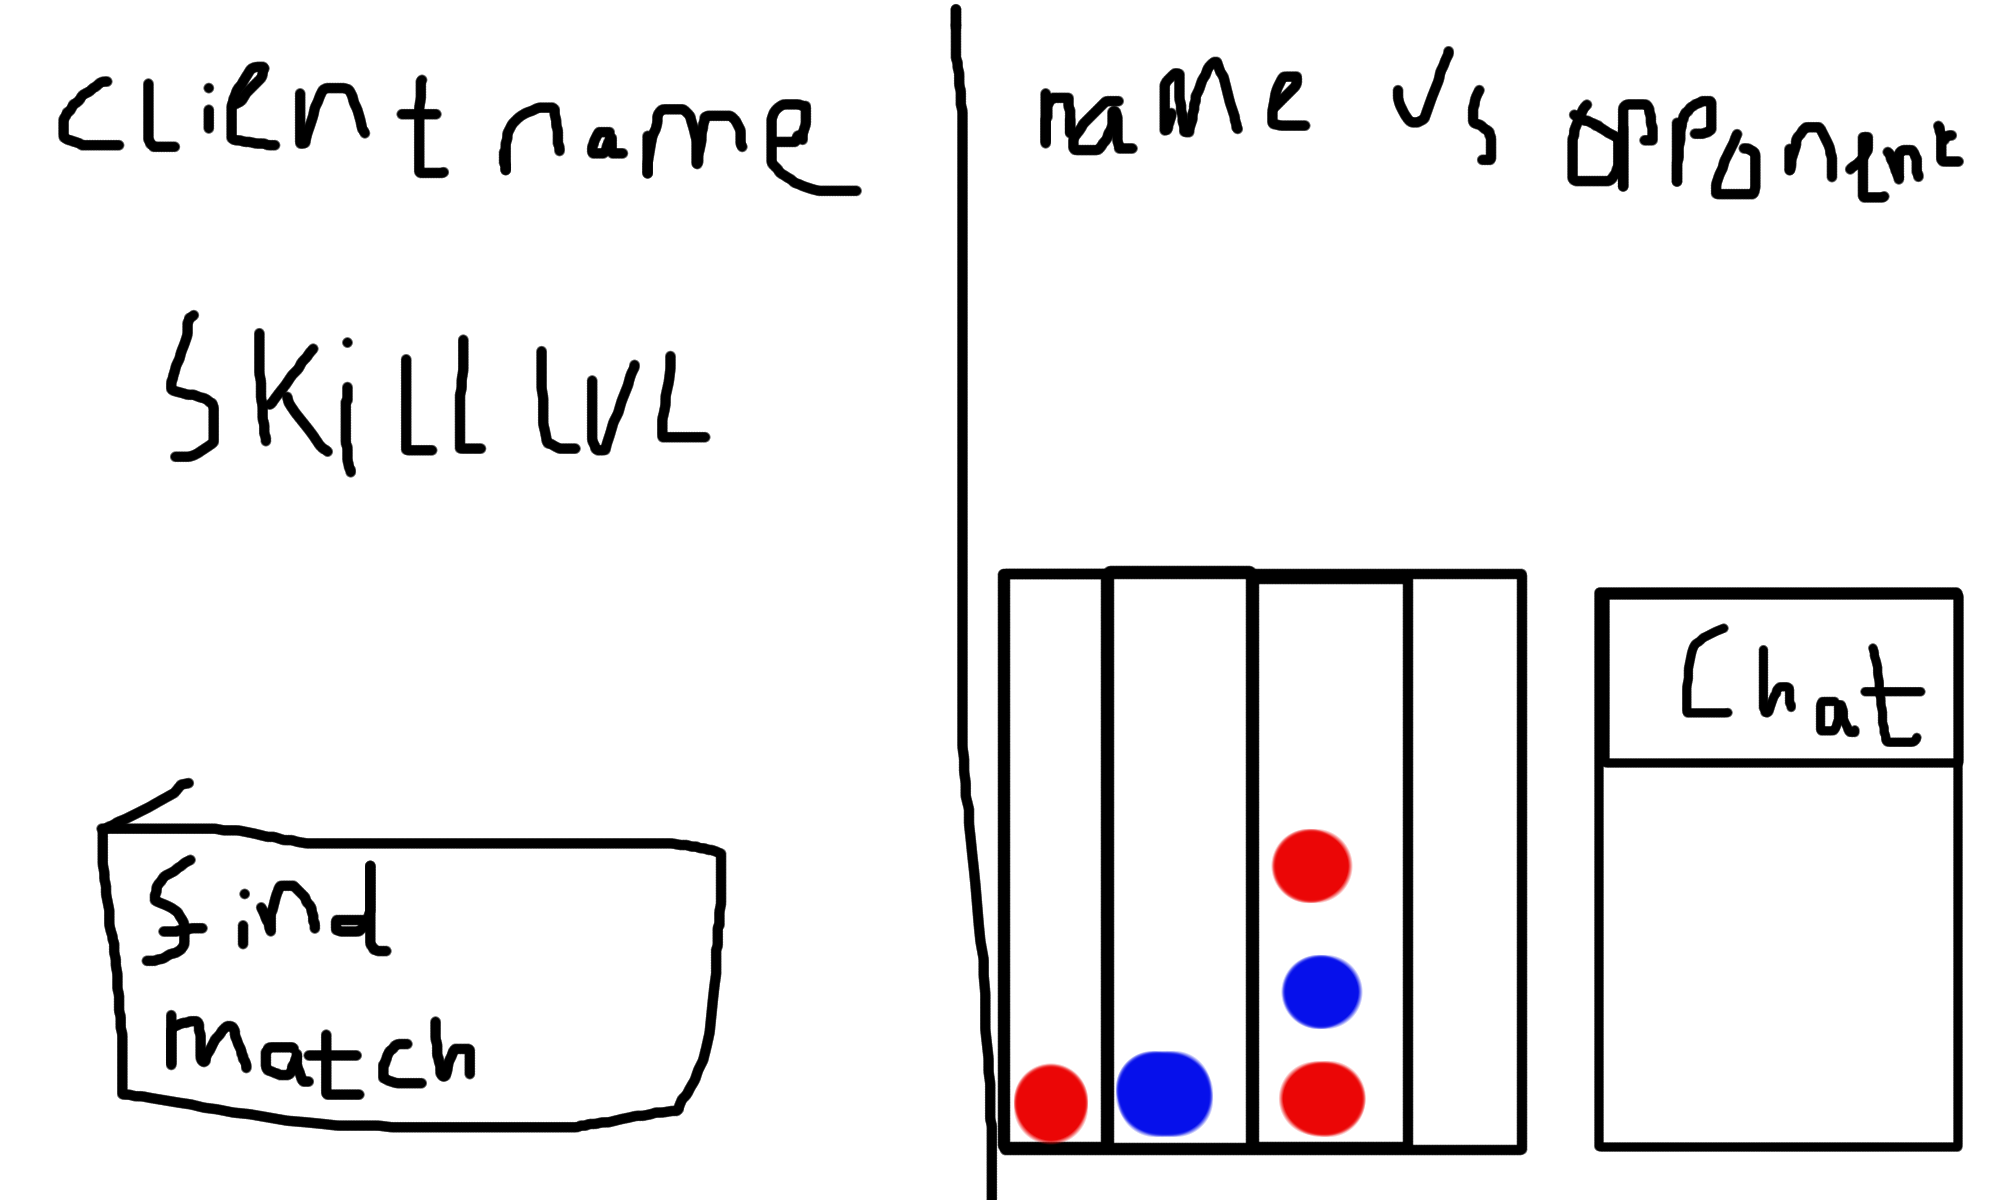 client name
Skill lvl
find
match
name vs opponent
Chat